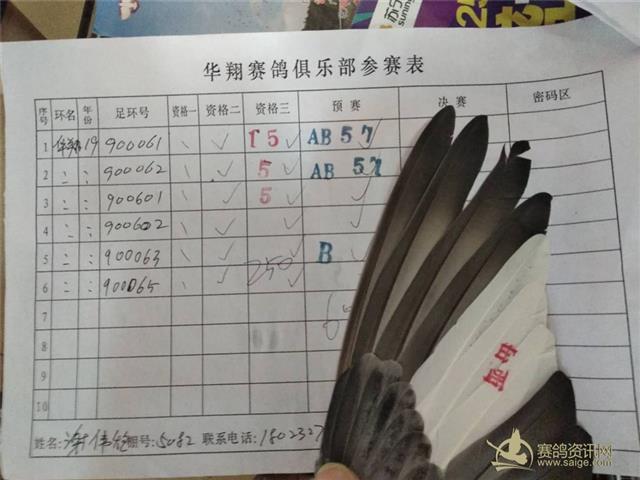 华翔赛鸽俱乐部参赛表
序号 环名 年份 足环号 资格一 资格二 资格三 预赛 决赛 密码区
1 华翔 19 900061 \ ✓ 15 ✓ AB 57 ✓
2 〃 〃 900062 \ ✓ 5 ✓ AB 57 ✓
3 〃 〃 900601 \ ✓ 5 ✓ ✓
4 〃 〃 900602 \ ✓ ✓ ✓
5 〃 〃 900063 \ ✓ ✓ B ✓
6 〃 〃 900065 \ ✓ 250 ✓
7
8
9
10
姓名: 谢伟 棚号: 5082 联系电话: 1802327
赛鸽资讯网
www.saige.com